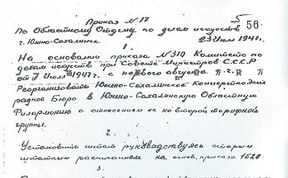 Приказ № 17
5
58
По Областному Отделу по делам искусств
г. Южно-Сахалинск 23 июля 1947г.
На основании приказа № 310 Комитета по
делам искусств при Совете Министров С.С.С.Р.
от 7 июля 1947 г. с первого августа
Реорганизовать Южно-Сахалинское Концертно-Эст
радное Бюро в Южно-Сахалинскую Областную
Филармонию с отнесением ее ко второй тарифной
группы.
2
Установить штат руководствуясь старым
штатным расписанием на основ. приказа 1628